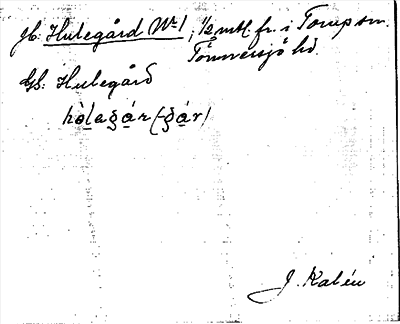 Jb. Hulegård No 1, 1/2 mtl. fr. i Torup sn.
Tönnersjö hd.
Gs. Hulegård
hò̱laga̱r (-ga̱r)
J. Kalén